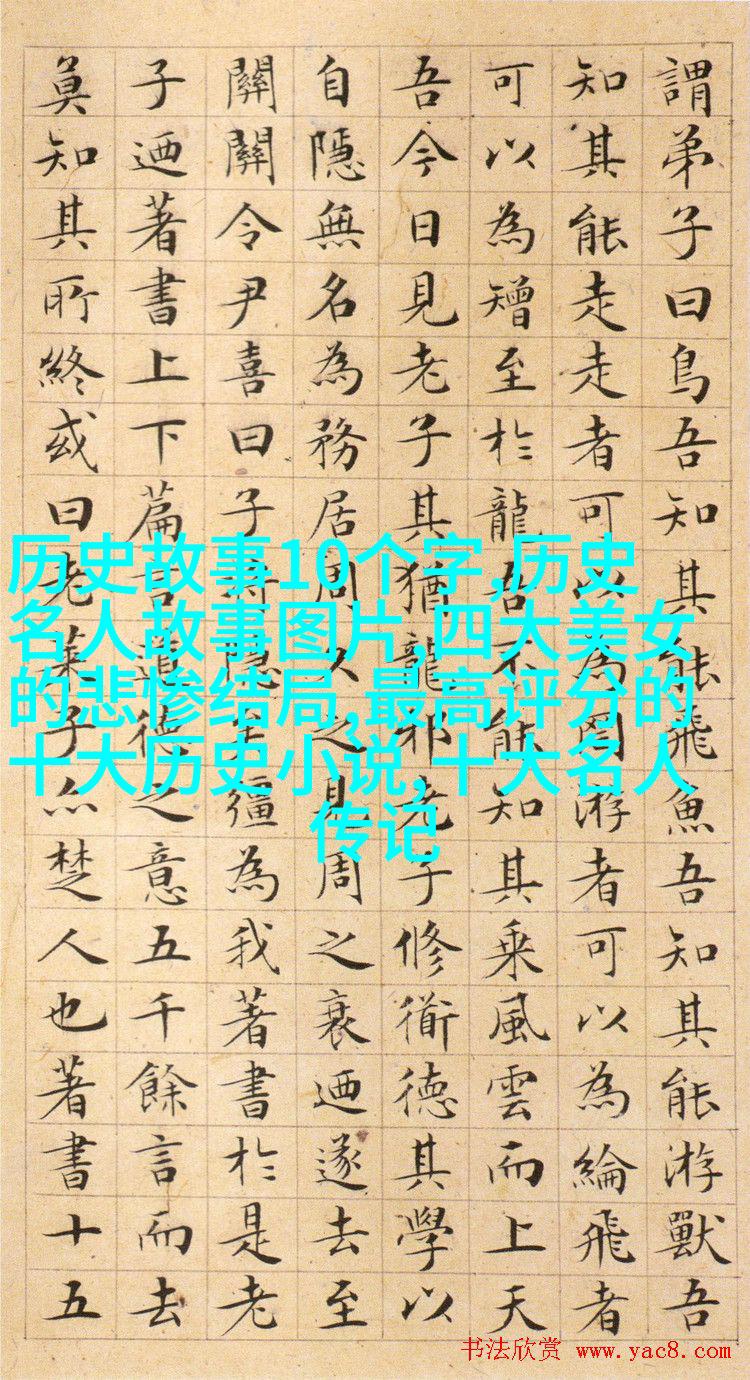 謂弟子曰鳥吾知其能飛魚吾知其能游獸吾
知其能走走者可以為罔游者可以為綸飛者
可以為矰至於龍吾不能知其乘風雲而上天
吾今日見老子其猶龍邪老子修衜德其學以
自隱無名為務居周久之見周之衰迺遂去至
關關令尹喜曰子將隱矣彊為我著書於是老
子迺著書上下篇言道德之意五千餘言而去
莫知其所終或曰老萊子亦楚人也著書十五
历史故事10个字,历史
名人故事图片,四大美女
的悲惨结局,最高评分的
十大历史小说,十大名人
传记
书法欣赏 www.yac8.com